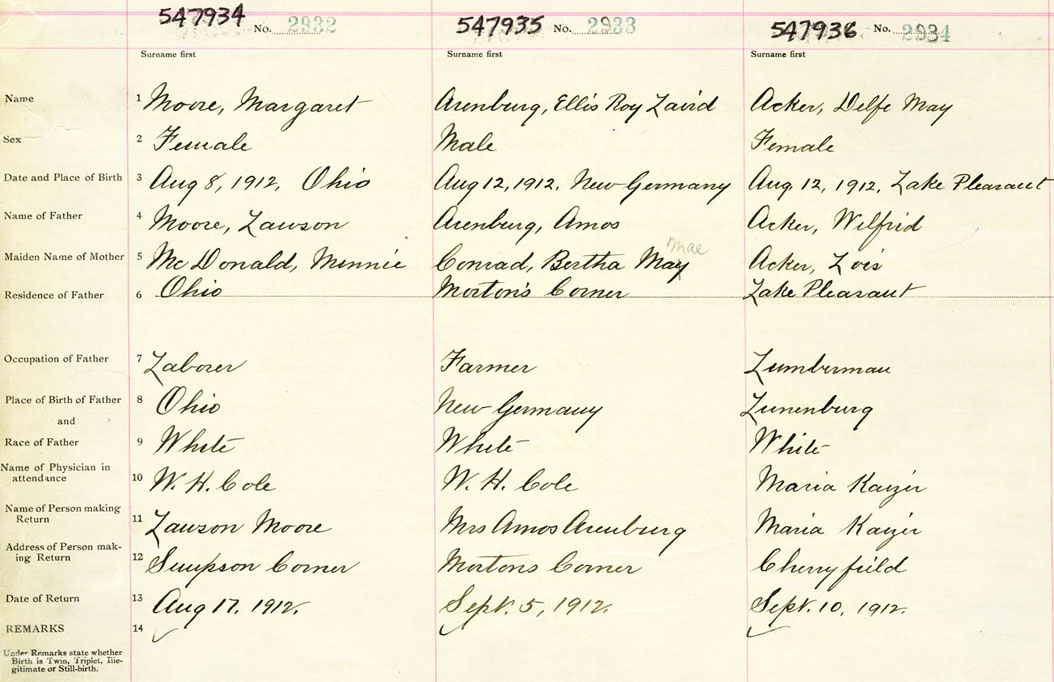 547934 No. 2932 547935 No. 2933 547936 No. 2934
Surname first Surname first Surname first
Name 1 Moore, Margaret Arenburg, Ellis Roy David Acker, Delfe May
Sex 2 Female Male Female
Date and Place of Birth 3 Aug 8, 1912, Ohio Aug 12, 1912, New Germany Aug. 12, 1912, Lake Pleasant
Name of Father 4 Moore, Lawson Arenburg, Amos Acker, Wilfrid
Mae
Maiden Name of Mother 5 McDonald, Minnie Conrad, Bertha May Acker, Lois
Residence of Father 6 Ohio Morton's Corner Lake Pleasant
Occupation of Father 7 Laborer Farmer Lumberman
Place of Birth of Father 8 Ohio New Germany Lunenburg
and
Race of Father 9 White White White
Name of Physician in
attendance 10 W. H. Cole W. H. Cole Maria Kaizer
Name of Person making
Return 11 Lawson Moore Mrs Amos Arenburg Maria Kaizer
Address of Person mak-
ing Return 12 Simpson Corner Mortons Corner Cherryfield
Date of Return 13 Aug 17, 1912. Sept. 5, 1912. Sept. 10, 1912.
REMARKS 14
Under Remarks state whether
Birth is Twin, Triplet, Ille-
gitimate or Still-birth.